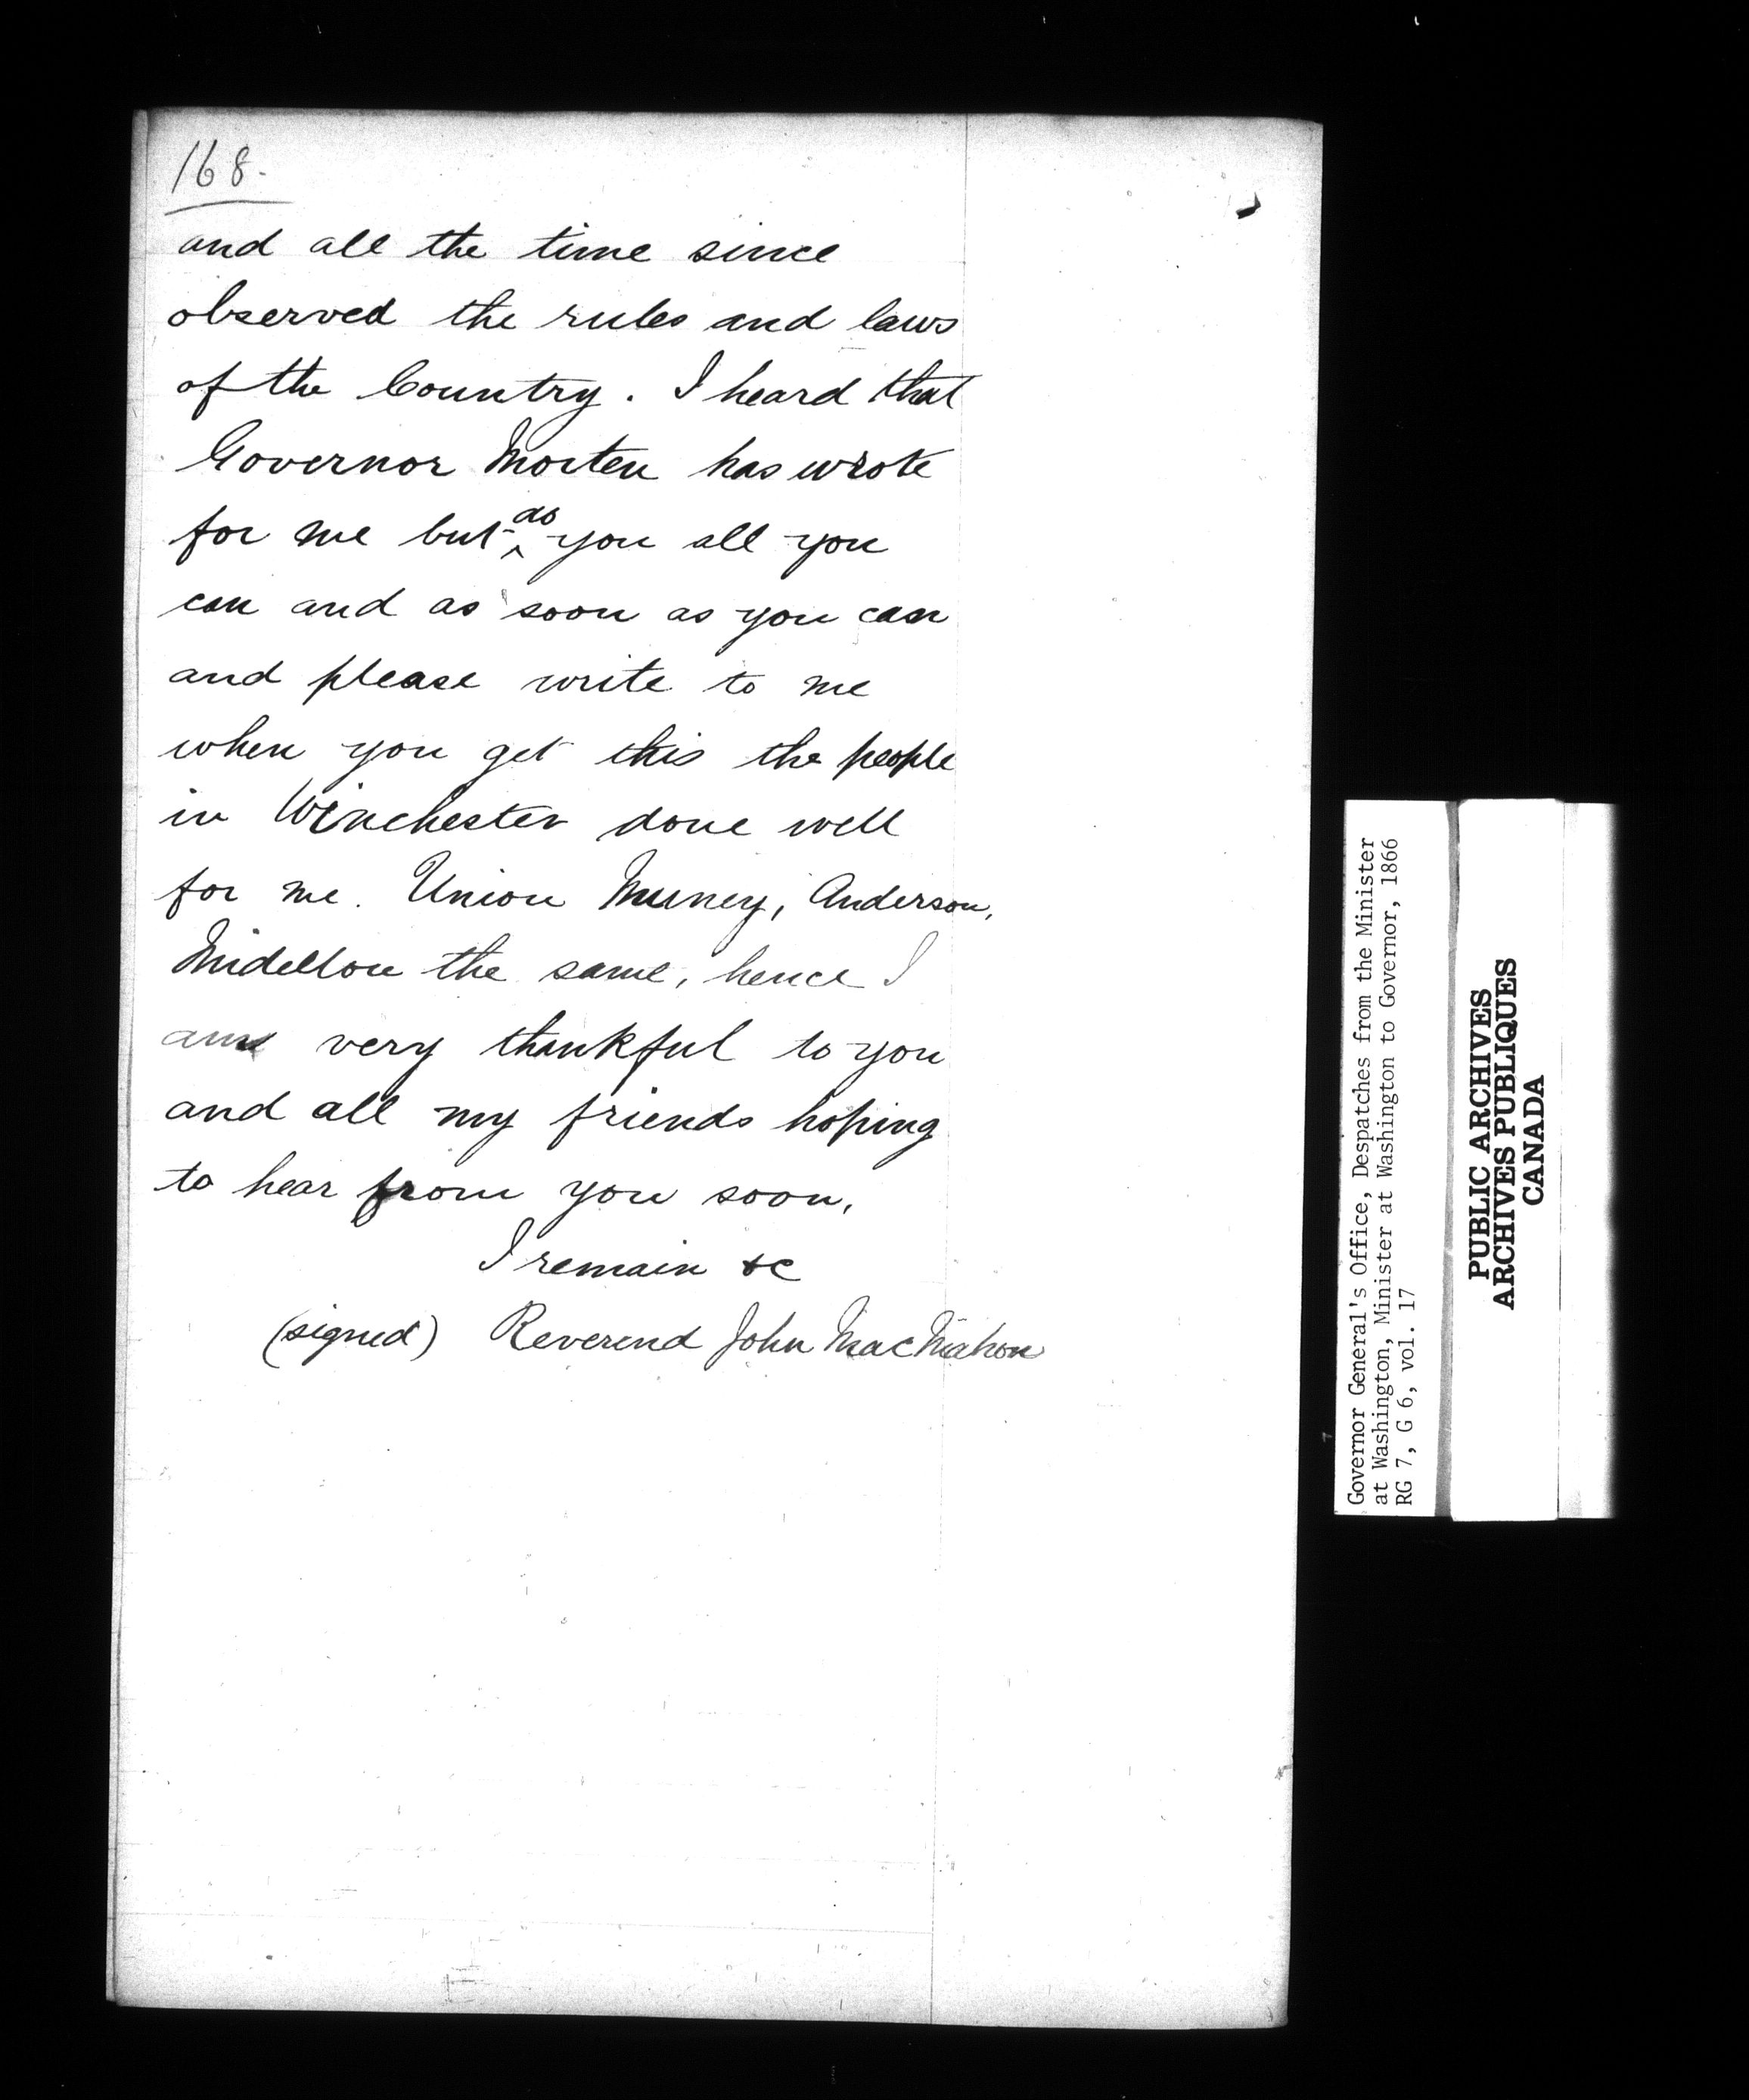 168.
and all the time since
observed the rules and laws
of the Country. I heard that
Governor Morten has wrote
for me but do you all you
can and as soon as you can
and please write to me
when you get this the people
in Winchester done well
for me. Union Muney, Anderson,
Midellon the same, hence I
am very thankful to you
and all my friends hoping
to hear from you soon,
I remain &c
(signed) Reverend John MacMahon
Governor General's Office, Despatches from the Minister
at Washington, Minister at Washington to Governor, 1866
RG 7, G 6, vol. 17
PUBLIC ARCHIVES
ARCHIVES PUBLIQUES
CANADA